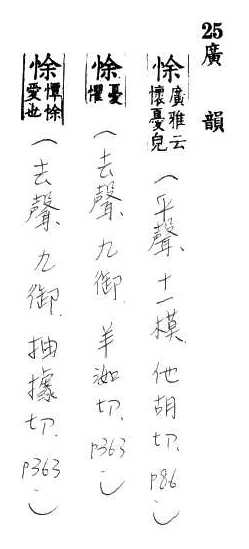 25廣韻
悇廣雅云懷憂皃(平聲、十一模.他胡切.P86)
悇憂懼(去聲、九御.羊洳切.P363)
悇憛悇愛也(去聲、九御.抽據切.P363)